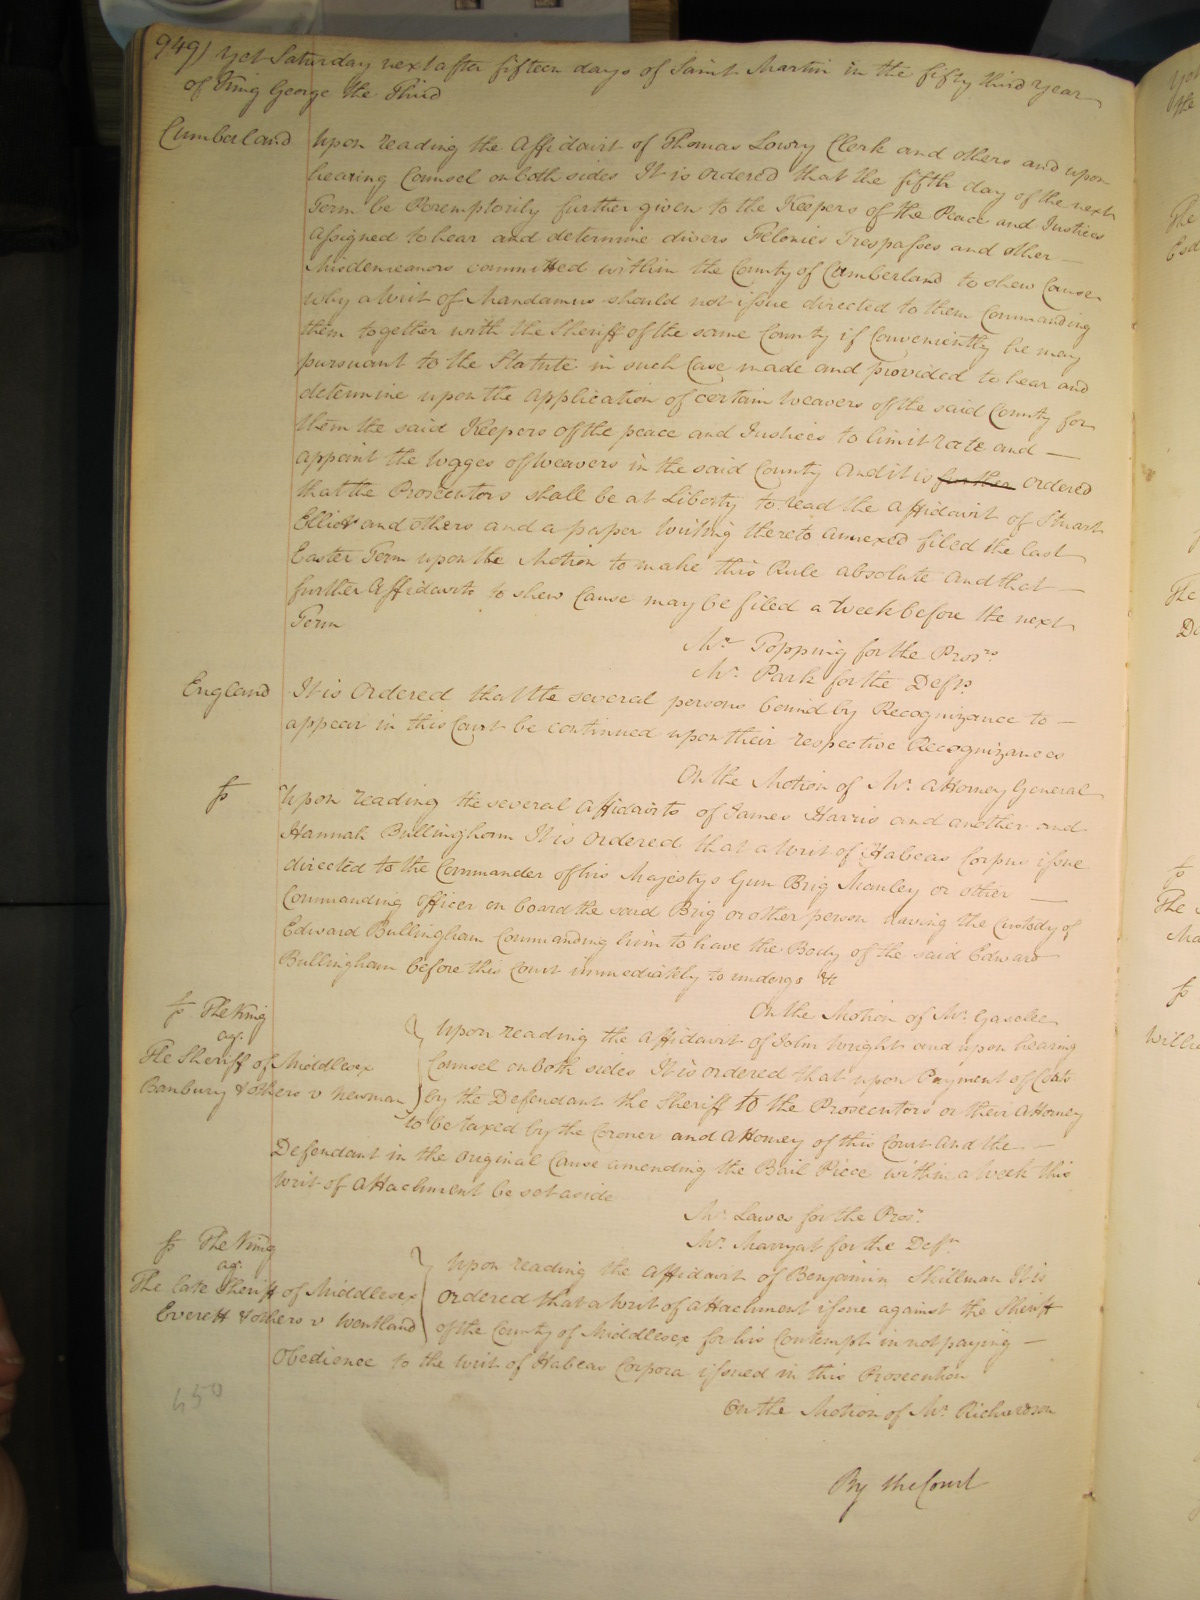 949) Yet Saturday next after fifteen days of Saint Martin in the fifty third year
of King George the Third
Cumberland Upon reading the Affidavit of Thomas Lowry Clerk and others and upon
hearing Counsel on both sides It is ordered that the fifth day of the next
Term be Peremptorily further given to the Keepers of the Peace and Justices
assigned to hear and determine divers Felonies Trespasses and other
Misdemeanors committed within the County of Cumberland to shew Cause
why a Writ of Mandamus should not issue directed to them Commanding
them together with the Sheriff of the same County if Conveniently he may
pursuant to the Statute in such Case made and provided to hear and
determine upon the Application of certain Weavers of the said County for
them the said Keepers of the peace and Justices to limit rate and
appoint the Wages of Weavers in the said County And it is further ordered
that the Prosecutors shall be at Liberty to read the Affidavit of Stuart
Elliot and others and a paper Writing thereto annexed filed the last
Easter Term upon the Motion to make this Rule absolute And that
further Affidavits to shew Cause may be filed a Week before the next
Term
Mr. Topping for the Prosrs.
Mr. Park for the Defts.
England It is Ordered that the several persons bound by Recognizance to
appear in this Court be continued upon their respective Recognizances
On the Motion of Mr. Attorney General
Upon reading the several Affidavits of James Harris and another and
Hannah Bullingham It is ordered that a Writ of Habeas Corpus issue
directed to the Commander of his Majestys Gun Brig Manley or other
Commanding Officer on board the said Brig or other person having the Custody of
Edward Bullingham Commanding him to have the Body of the said Edward
Bullingham before this Court immediately to undergo &c
On the Motion of Mr. Gaselee
The King
agt.
The Sheriff of Middlesex
Banbury & others v Newman
Upon reading the Affidavit of John Wright and upon hearing
Counsel on both sides It is ordered that upon Payment of Costs
by the Defendant the Sheriff to the Prosecutors or their Attorney
to be taxed by the Coroner and Attorney of this Court And the
Defendant in the Original Cause amending the Bail Piece within a Week this
Writ of Attachment be set aside
Mr. Lawes for the Prosr.
Mr. Marryat for the Deft.
The King
agt.
The late Sheriff of Middlesex
Everett & others v Wentland
Upon reading the Affidavit of Benjamin Skillman It is
ordered that a Writ of Attachment issue against the Sheriff
of the County of Middlesex for his Contempt in not paying
Obedience to the Writ of Habeas Corpora issued in this Prosecution
On the Motion of Mr. Richardson
By the Court
450